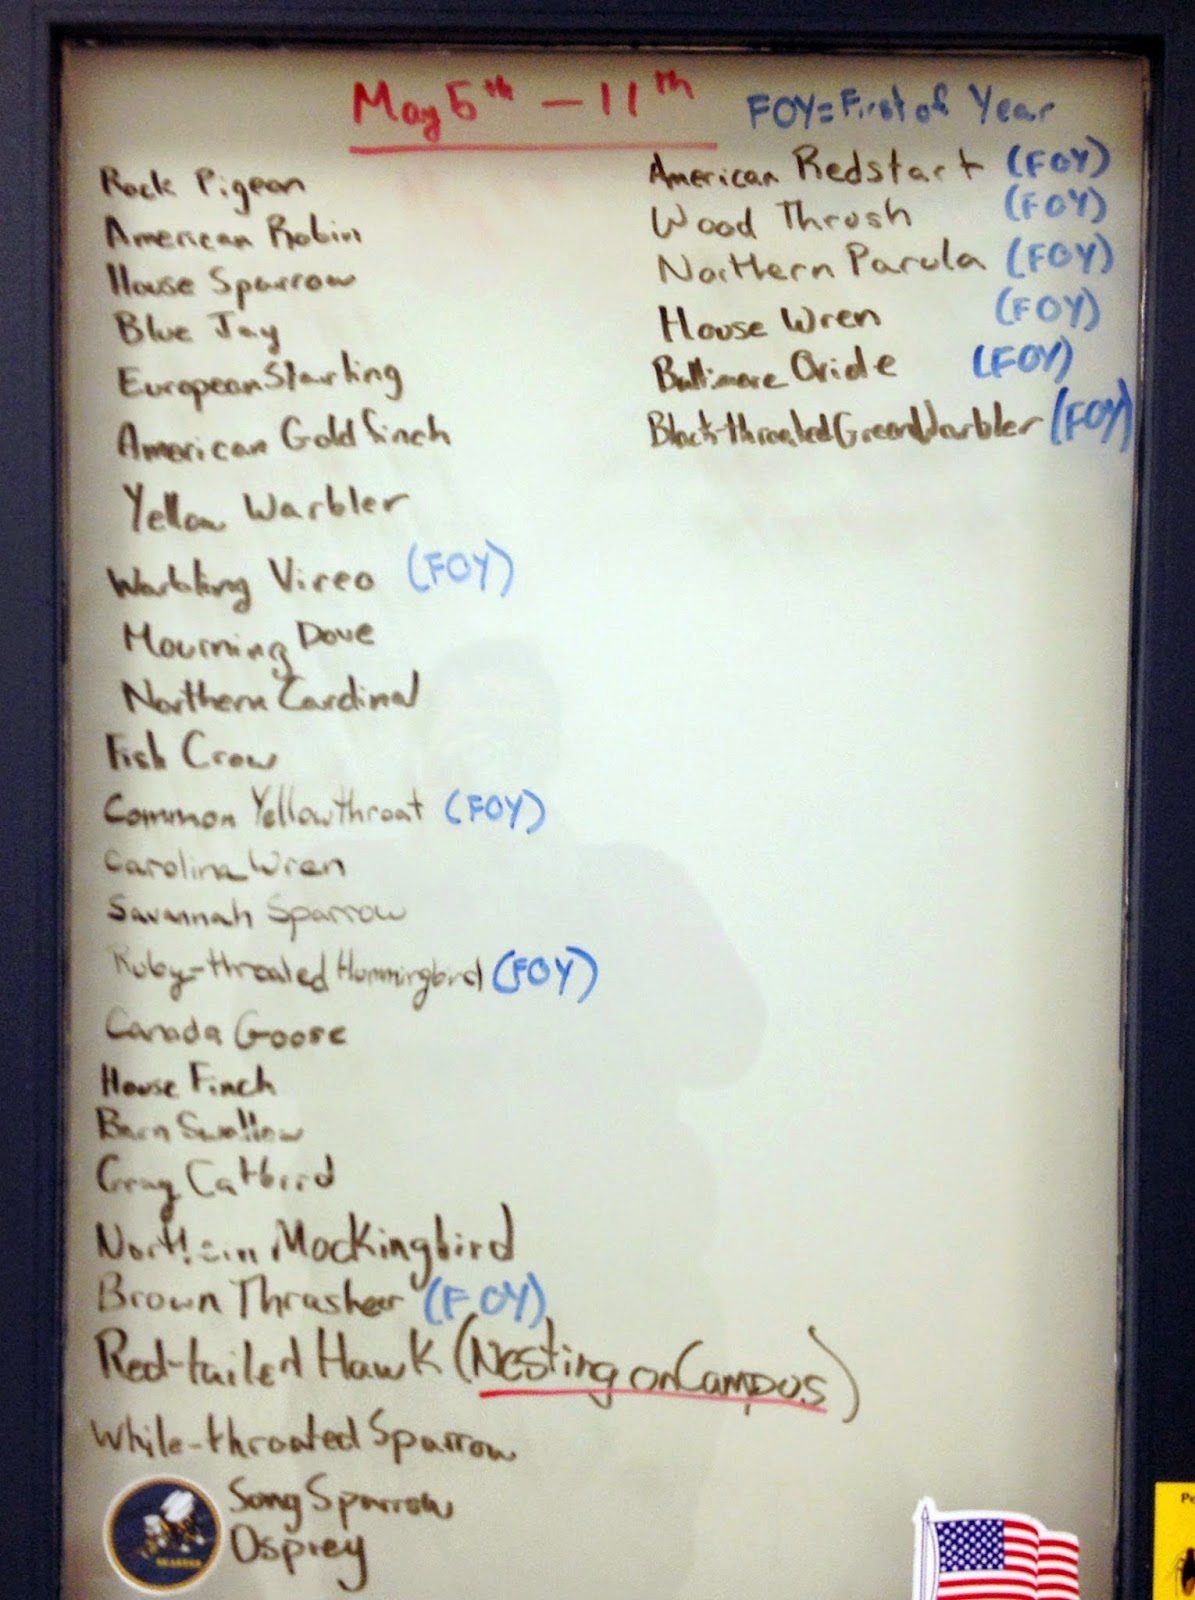 May 5th - 11th
FOY=First of Year
Rock Pigeon
American Robin
House Sparrow
Blue Jay
European Starling
American Goldfinch
Yellow Warbler
Warbling Vireo (FOY)
Mourning Dove
Northern Cardinal
Fish Crow
Common Yellowthroat (FOY)
Carolina Wren
Savannah Sparrow
Ruby-throated Hummingbird (FOY)
Canada Goose
House Finch
Barn Swallow
Gray Catbird
Northern Mockingbird
Brown Thrasher (FOY)
Red-tailed Hawk (Nesting on Campus)
White-throated Sparrow
Song Sparrow
Osprey
American Redstart (FOY)
Wood Thrush (FOY)
Northern Parula (FOY)
House Wren (FOY)
Baltimore Oriole (FOY)
Black-throated Green Warbler (FOY)